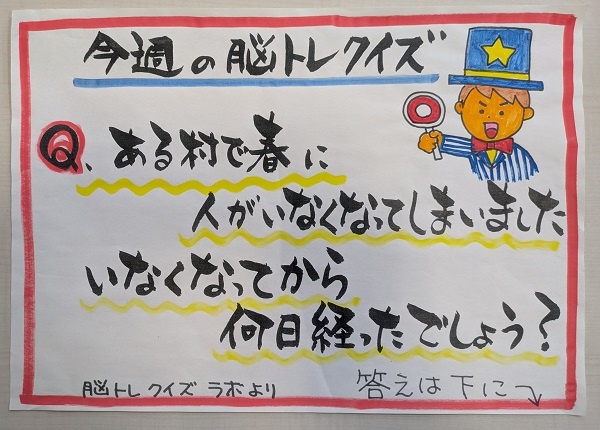 今週の脳トレクイズ
Q、ある村で春に
人がいなくなってしまいました
いなくなってから
何日経ったでしょう？
脳トレクイズラボより
答えは下に→